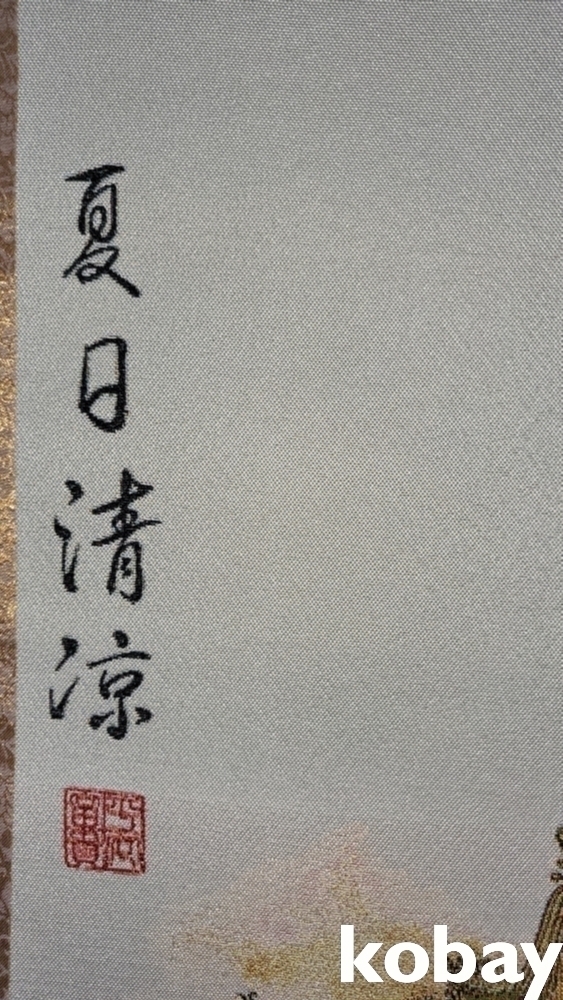 夏日清涼
kobay